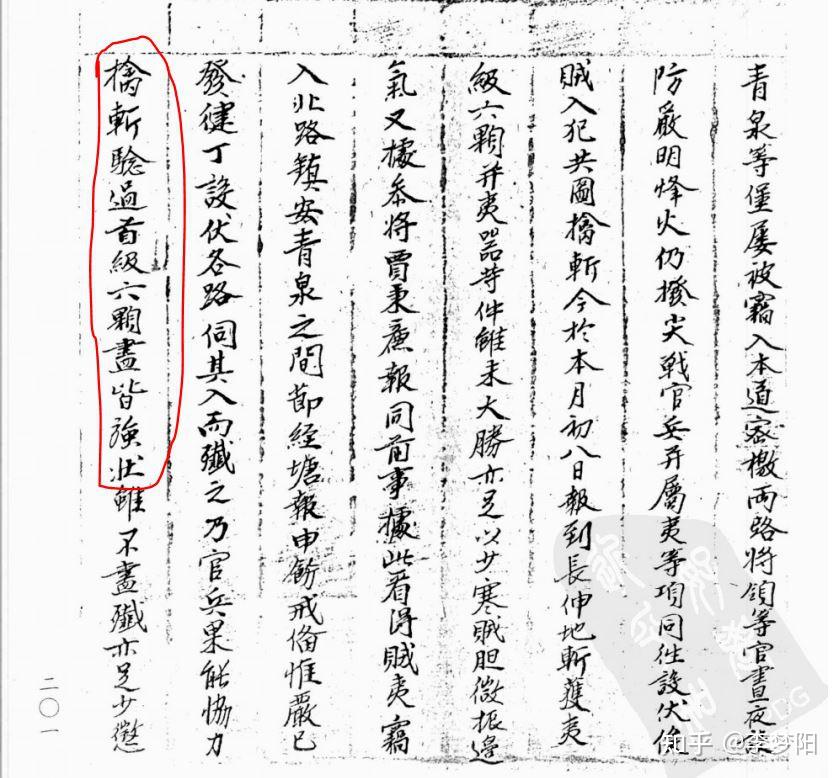 青泉等堡屡被竊入本道密檄両路将領等官晝夜
防嚴明烽火仍撥尖戰官兵并屬夷等項同徃設伏
賊入犯共圖擒斬今於本月初八日報到長伸地斬獲夷
級六顆并夷噐等件雖未大勝亦足以少寒賊胆微振邊
氣又據叅将賈秉廉報同前事據此看得賊夷竊
入北路鎮安青泉之間節經塘報申飭戒俻惟嚴已
發健丁設伏各路伺其入而殲之乃官兵果能協力
擒斬驗過首級六顆盡皆強壮雖不盡殲亦足少懲
二〇一
知乎 @李梦阳